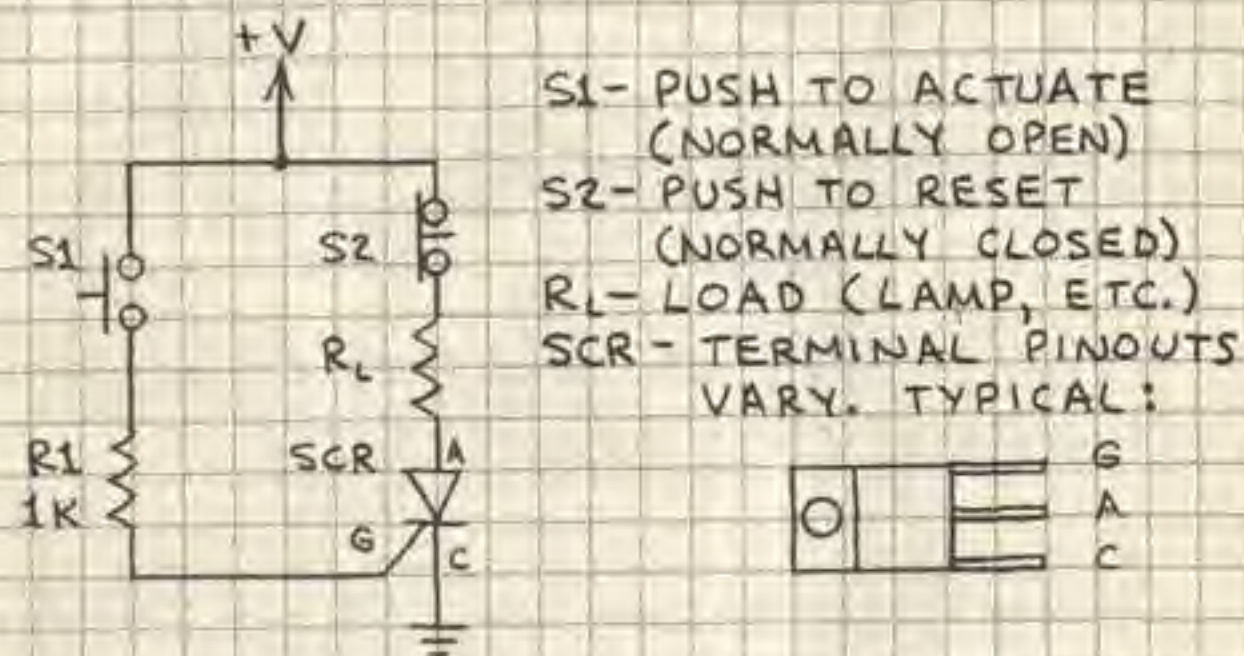 +V
S1
S2
RL
R1
1K
SCR
A
G
C
S1- PUSH TO ACTUATE
(NORMALLY OPEN)
S2- PUSH TO RESET
(NORMALLY CLOSED)
RL- LOAD (LAMP, ETC.)
SCR - TERMINAL PINOUTS
VARY. TYPICAL:
G
A
C